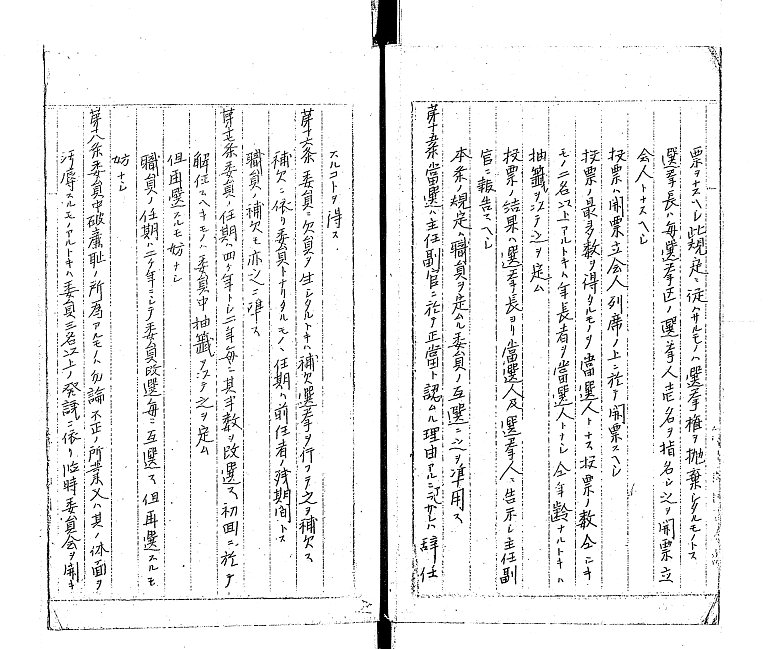 票ヲナスヘシ此規定ニ従ハサルモノハ選挙権ヲ抛棄シタルモノトス
選挙長ハ毎選挙区ノ選挙人壱名ヲ指名シ之ヲ開票立
会人トナスヘシ
投票ハ開票立会人列席ノ上ニ於テ開票スヘシ
投票ノ最多数ヲ得タルモノヲ當選人トナス投票ノ数仝シキ
モノ二名以上アルトキハ年長者ヲ當選人トナシ仝年齢ナルトキハ
抽籤ヲ以テ之ヲ定ム
投票ノ結果ハ選挙長ヨリ當選人及選挙人ニ告示シ主任副
官ニ報告スヘシ
本条ノ規定ハ職員ヲ定ムル委員ノ互選ニ之ヲ準用ス
第十五条當選ハ主任副官ニ於テ正當ト認ムル理由アルニ非サレハ辞任
スルコトヲ得ス
第十六条委員ニ欠員ヲ生シタルトキハ補欠選挙ヲ行フテ之ヲ補欠ス
補欠ニ依リ委員トナリタルモノハ任期ハ前任者ノ残期間トス
職員ノ補欠モ亦之ニ準ス
第十七条委員ノ任期ハ四ヶ年トシ二年毎ニ其半数ヲ改選ス初回ニ於テ
解任スヘキモノハ委員中抽籤ヲ以テ之ヲ定ム
但再選スルモ妨ナシ
職員ノ任期ハ二ヶ年ニシテ委員改選毎ニ互選ス但再選スルモ
妨ナシ
第十八条委員中破廉恥ノ所為アルモノハ勿論不正ノ所業又ハ其ノ体面ヲ
汚辱スルモノアルトキハ委員三名以上ノ発議ニ依リ臨時委員会ヲ開キ